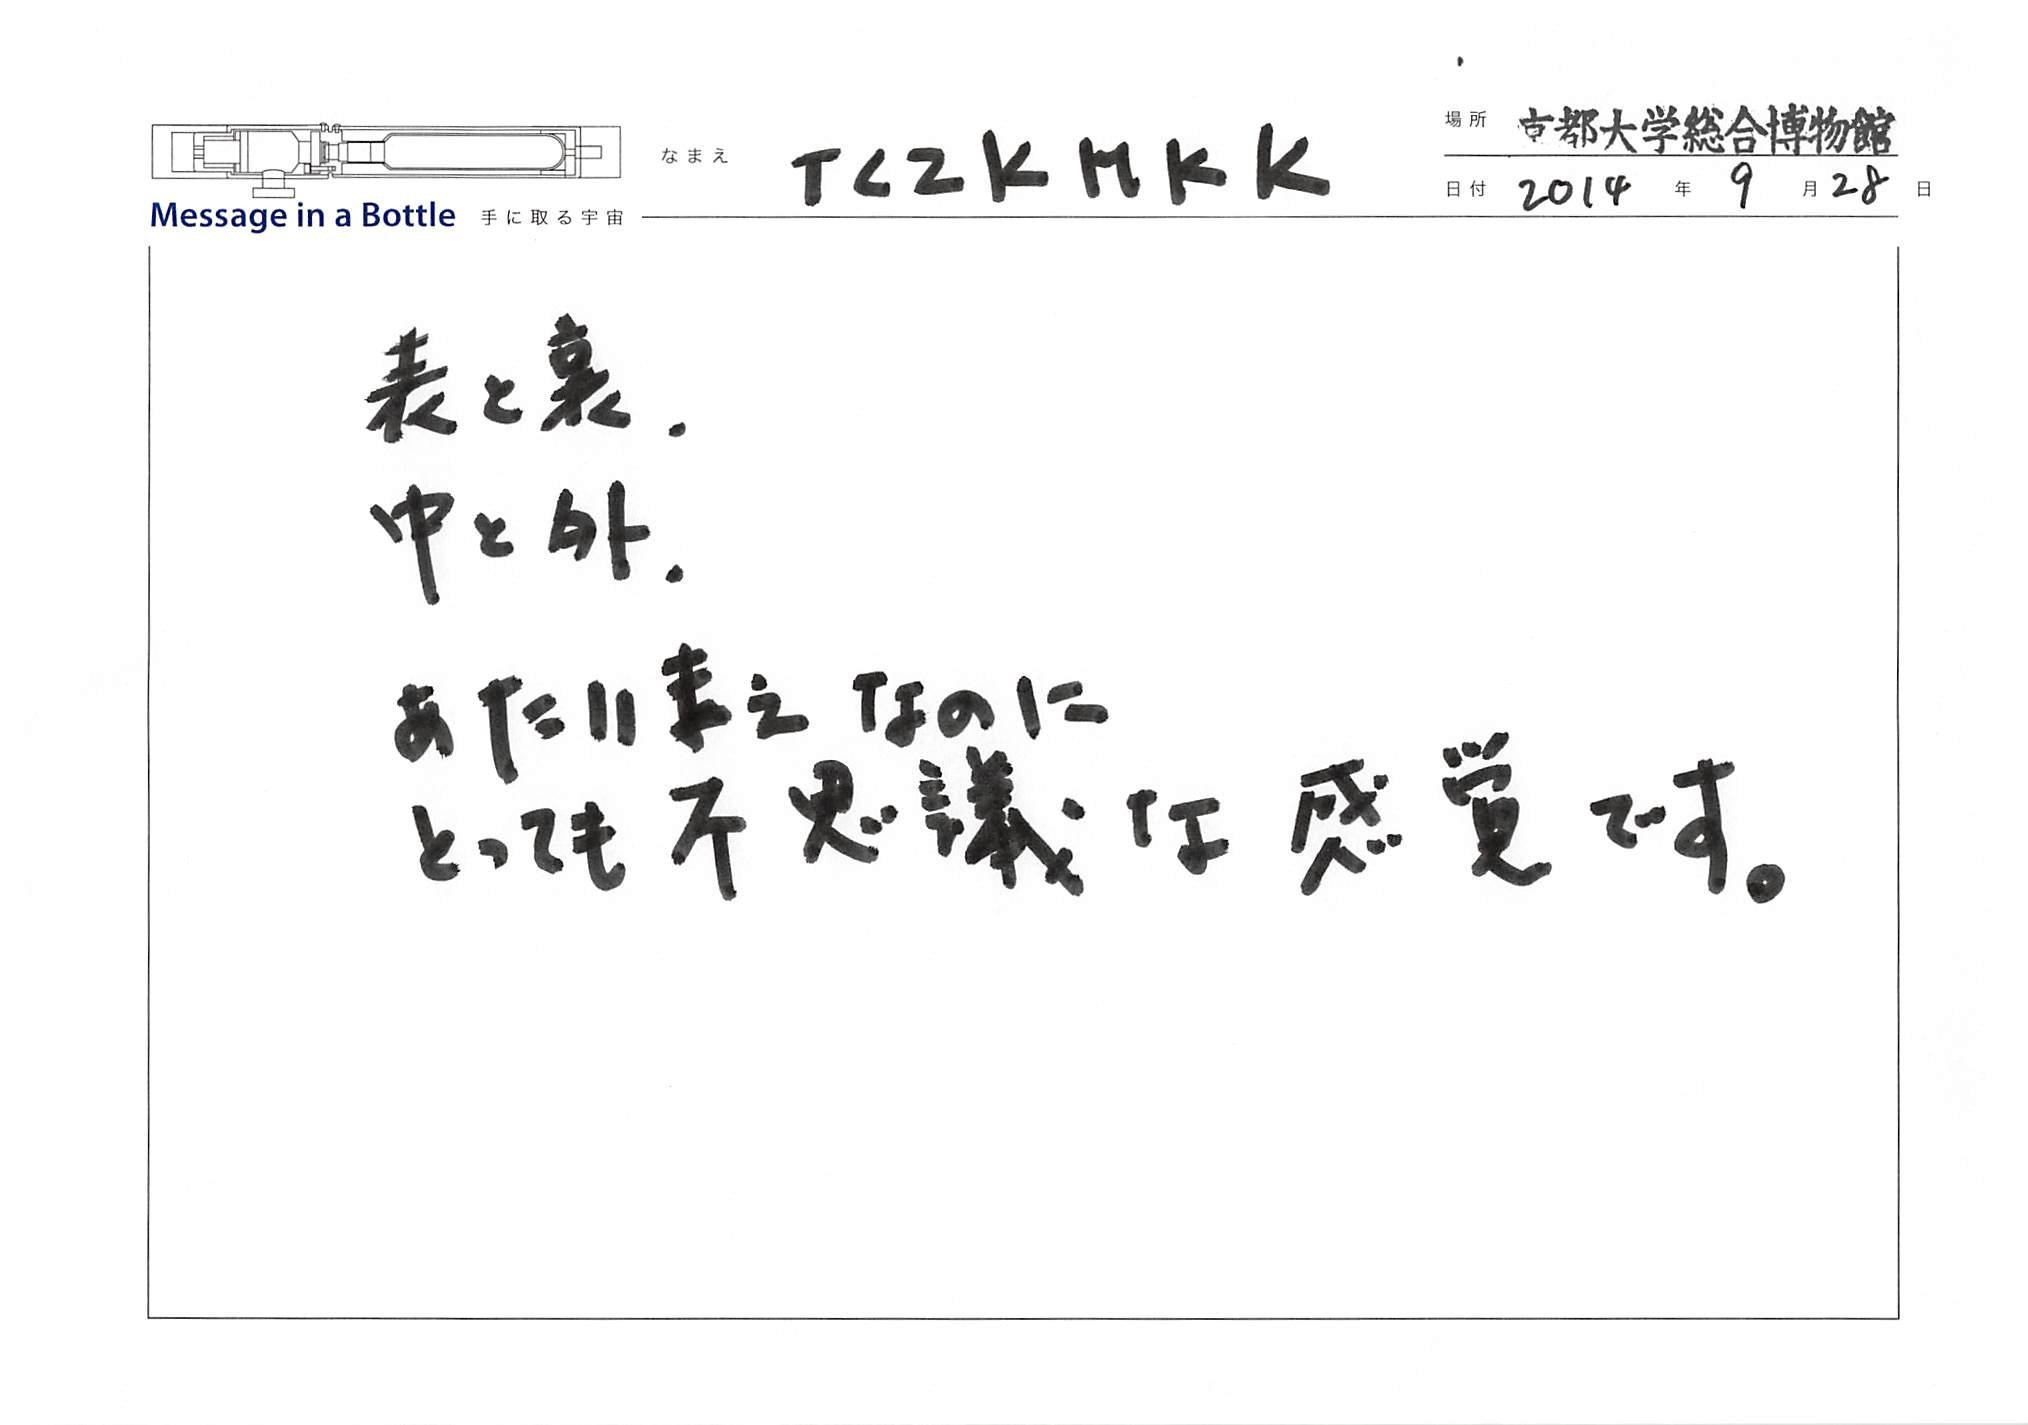 場所 京都大学総合博物館
なまえ TCZKMKK
日付 2014 年 9 月 28 日
Message in a Bottle 手に取る宇宙
表と裏.
中と外.
あたりまえなのに
とっても不思議な感覚です。